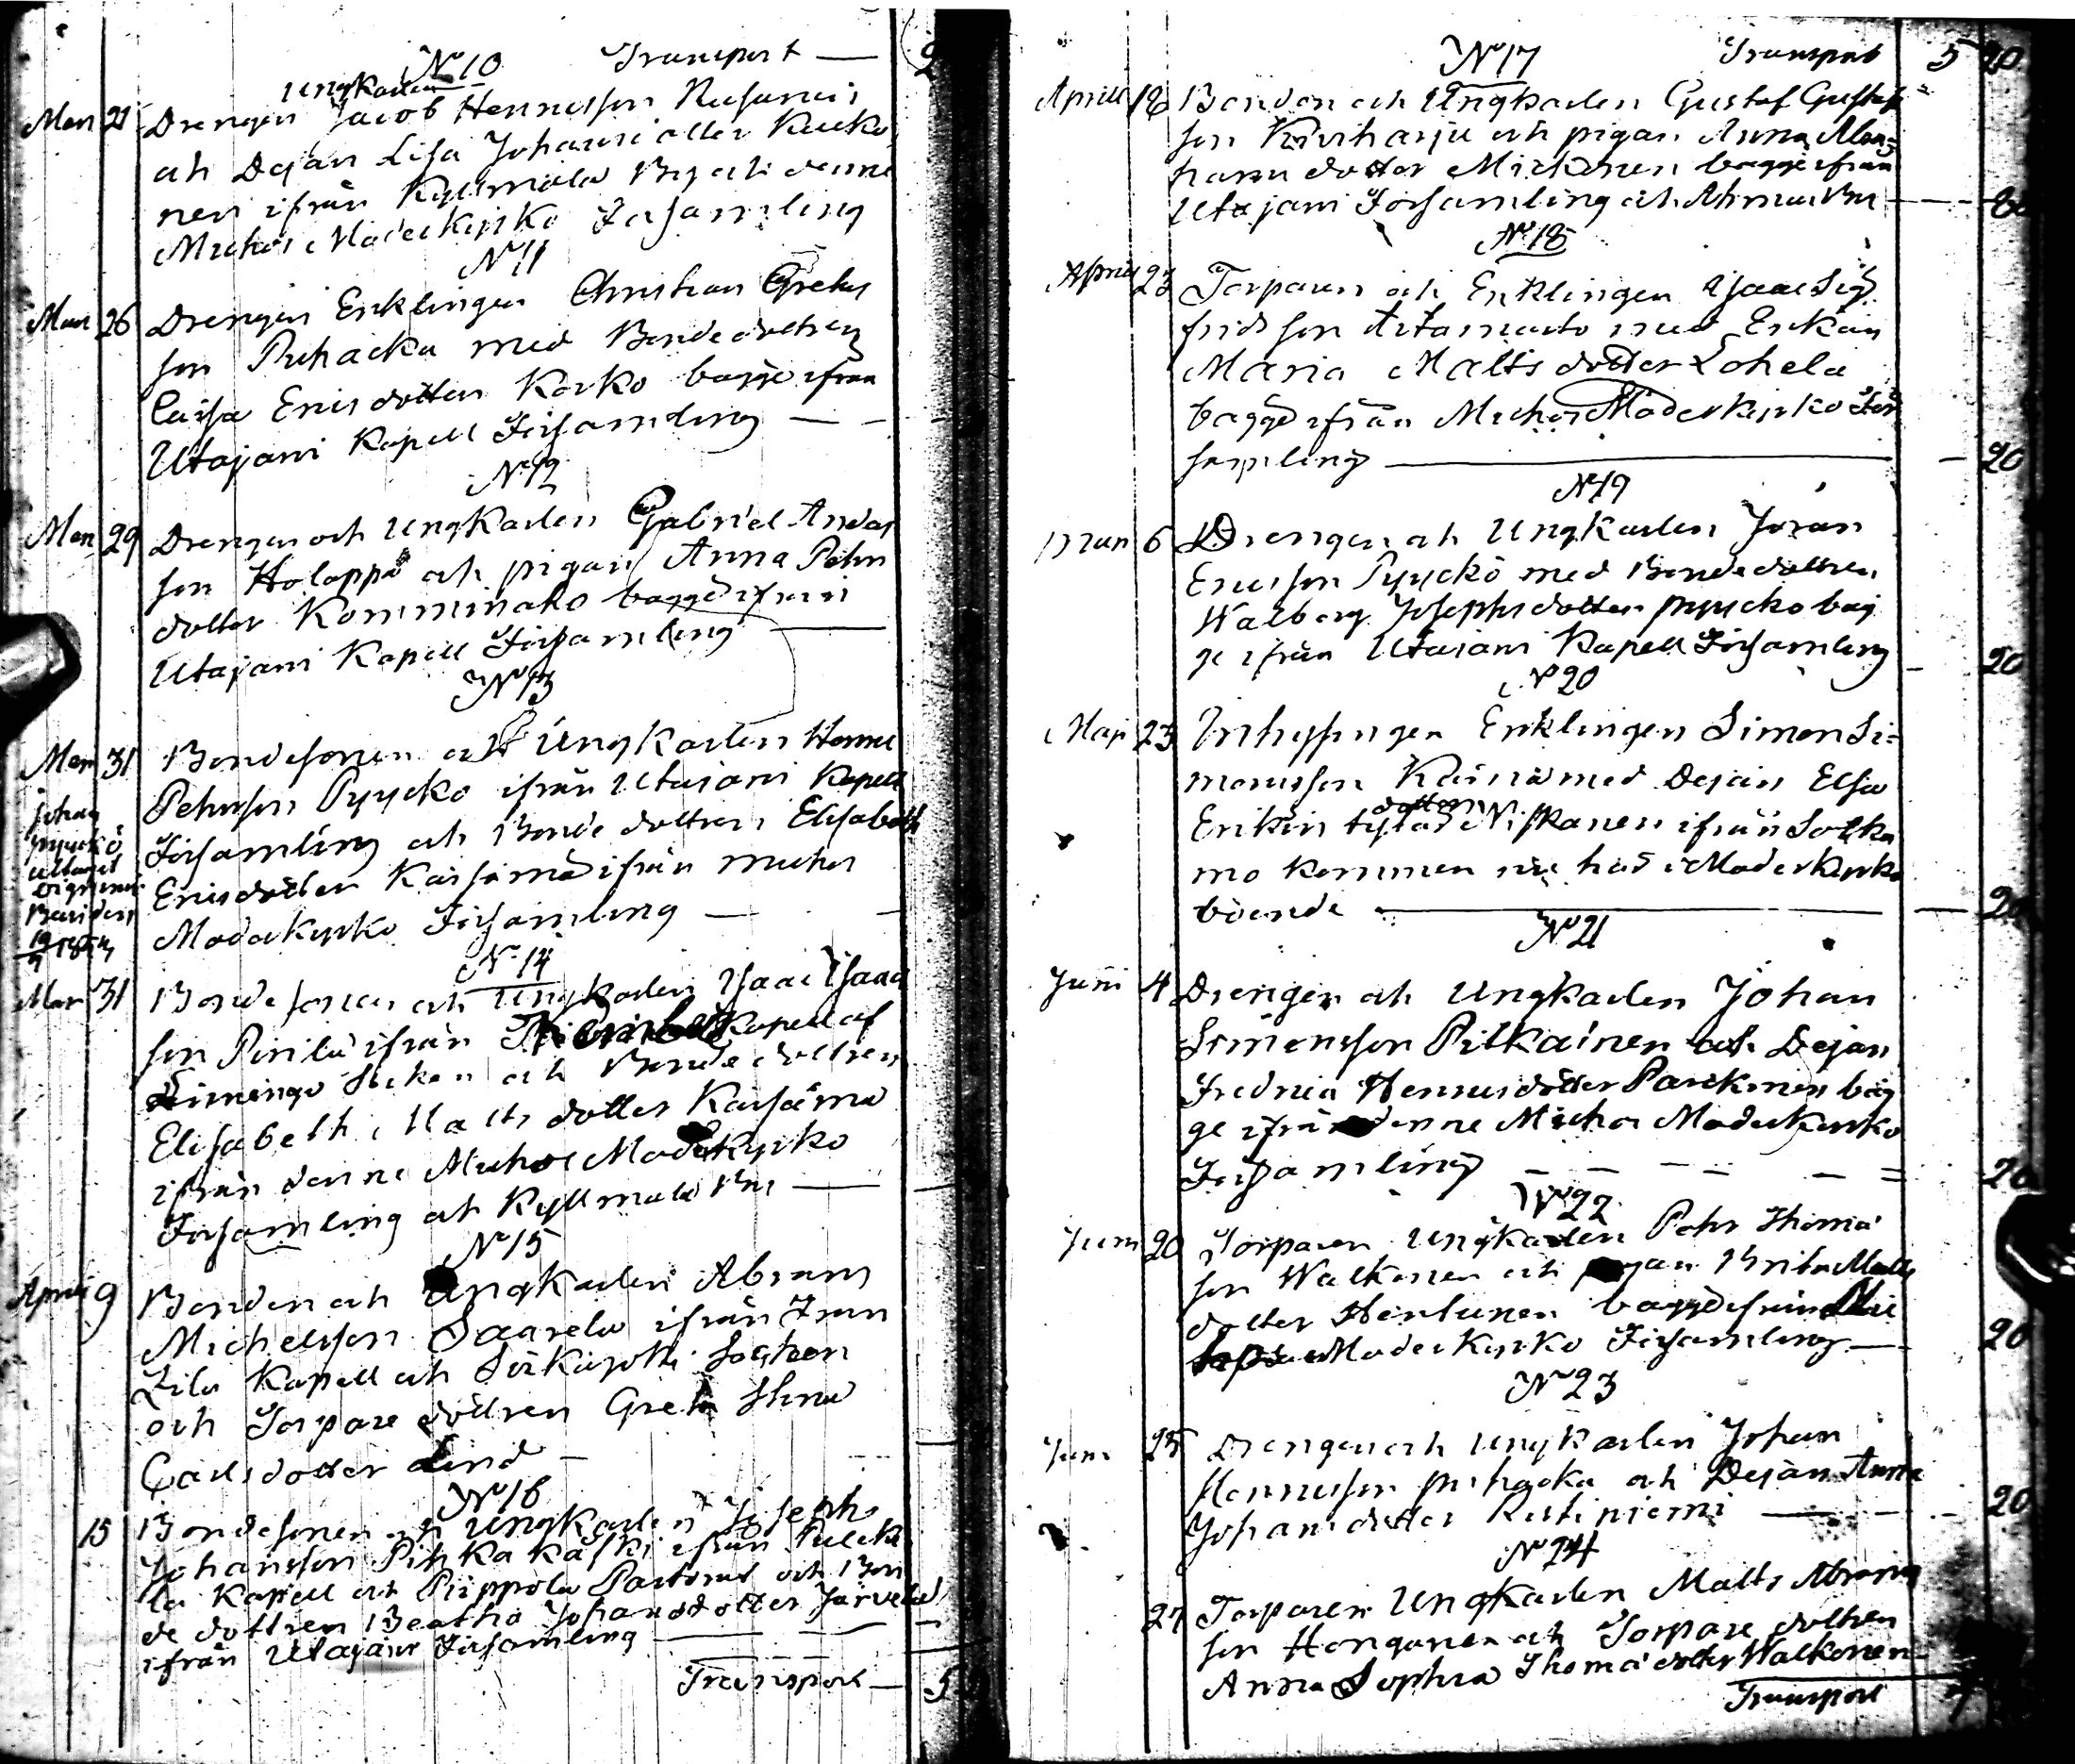 No 10 Transport —
Ungkarlen
Mars 21 Drengen Jacob Hennusson
och Dejan Lisa Johani
nen ifrån Kyllmälä By och denne
Muhos Moderkyrko Församling
No 11
Mars 26 Drengen Enklingen Christian Grels
son Puhacka med Bondedottren
Caisa Ericsdotter Korko bägge ifrån
Utajarvi Kapell Församling —
No 12
Mars 29 Drengen och Ungkarlen Gabriel Anders
son Holappa och pigan Anna Pehrs
dotter Komminaho bägge ifrån
Utajarvi Kapell Församling —
No 13
Mars 31 Bondesonen och Ungkarlen Hennric
Pehrsson Pyycko ifrån Utajarvi Kapell
Församling och Bonde dottren Elisabeth
Ericsdotter Kärsämä ifrån Muhos
Moderkyrko Församling —
Johan
Pyyckö
uttagit
No 14
Mars 31 Bonde sonen och Ungkarlen Isaac Isaacs
son Pirilä ifrån Kapell af
Limingo Socken och Bonde dottren
Elisabeth Matts dotter Kärsämä
ifrån denne Muhos Moderkyrko
Församling och Kyllmälä By —
No 15
April 9 Bonden och Ungkarlen Abram
Michelsson Saarela ifrån Fran
zila Kapell och Siikajoki Socken
och Torpare dottren Greta Stina
Carlsdotter Lind —
No 16
15 Bondesonen och Ungkarlen Joseph
Johansson Pihkakaski ifrån Pulcki
la Kapell och Piippola Pastorat och Bon
de dottren Beatha Johansdotter Järvelä
ifrån Utajarvi Församling —
Transport — 5
No 17 Transport 5 20
April 18 Bonden och Ungkarlen Gustaf Gustafs
son Kiviharju och pigan Anna Abra
hams dotter Mickonen bägge ifrån
Utajarvi Församling och Ahmas By —
No 18
April 23 Torparen och Enklingen Isaac Sig
fridsson med Enkan
Maria Matts dotter Lohela
bägge ifrån Muhos Moderkyrko För
samling — 20
No 19
Maji 6 Drengen och Ungkarlen Jöran
Ericsson Pyyckö med Bonde dottren
Walborg Josephsdotter Pyycko bäg
ge ifrån Utajarvi Kapell Församling — 20
No 20
Maji 23 Inhysingen Enklingen Simon Si=
monsson Kärnä med Dejan Elsa
Erikin tytär dotter Niskanen ifrån Sotka
mo kommen nu här i Moderkyrko
boende — 20
No 21
Juni 4 Drengen och Ungkarlen Johan
Simonsson Pitkäinen och Dejan
Fredrica Hennusdotter Parckinen bäg
ge ifrån denne Muhos Moderkyrko
Församling — 20
No 22
Juni 20 Torparen Ungkarlen Pehr Thoma
son Walkonen och pigan Brita Matts
dotter Hentunen bägge ifrån
Moderkyrko Församling — 20
No 23
Juni 25 Drengen och Ungkarlen Johan
Hennusson Puhacka och Dejan Anna
Johansdotter Ristiniemi — 20
No 24
27 Torparen Ungkarlen Matts Abrams
son Hongonen och Torpare dottren
Anna Sophia Thomædotter Walkonen
Transport 7